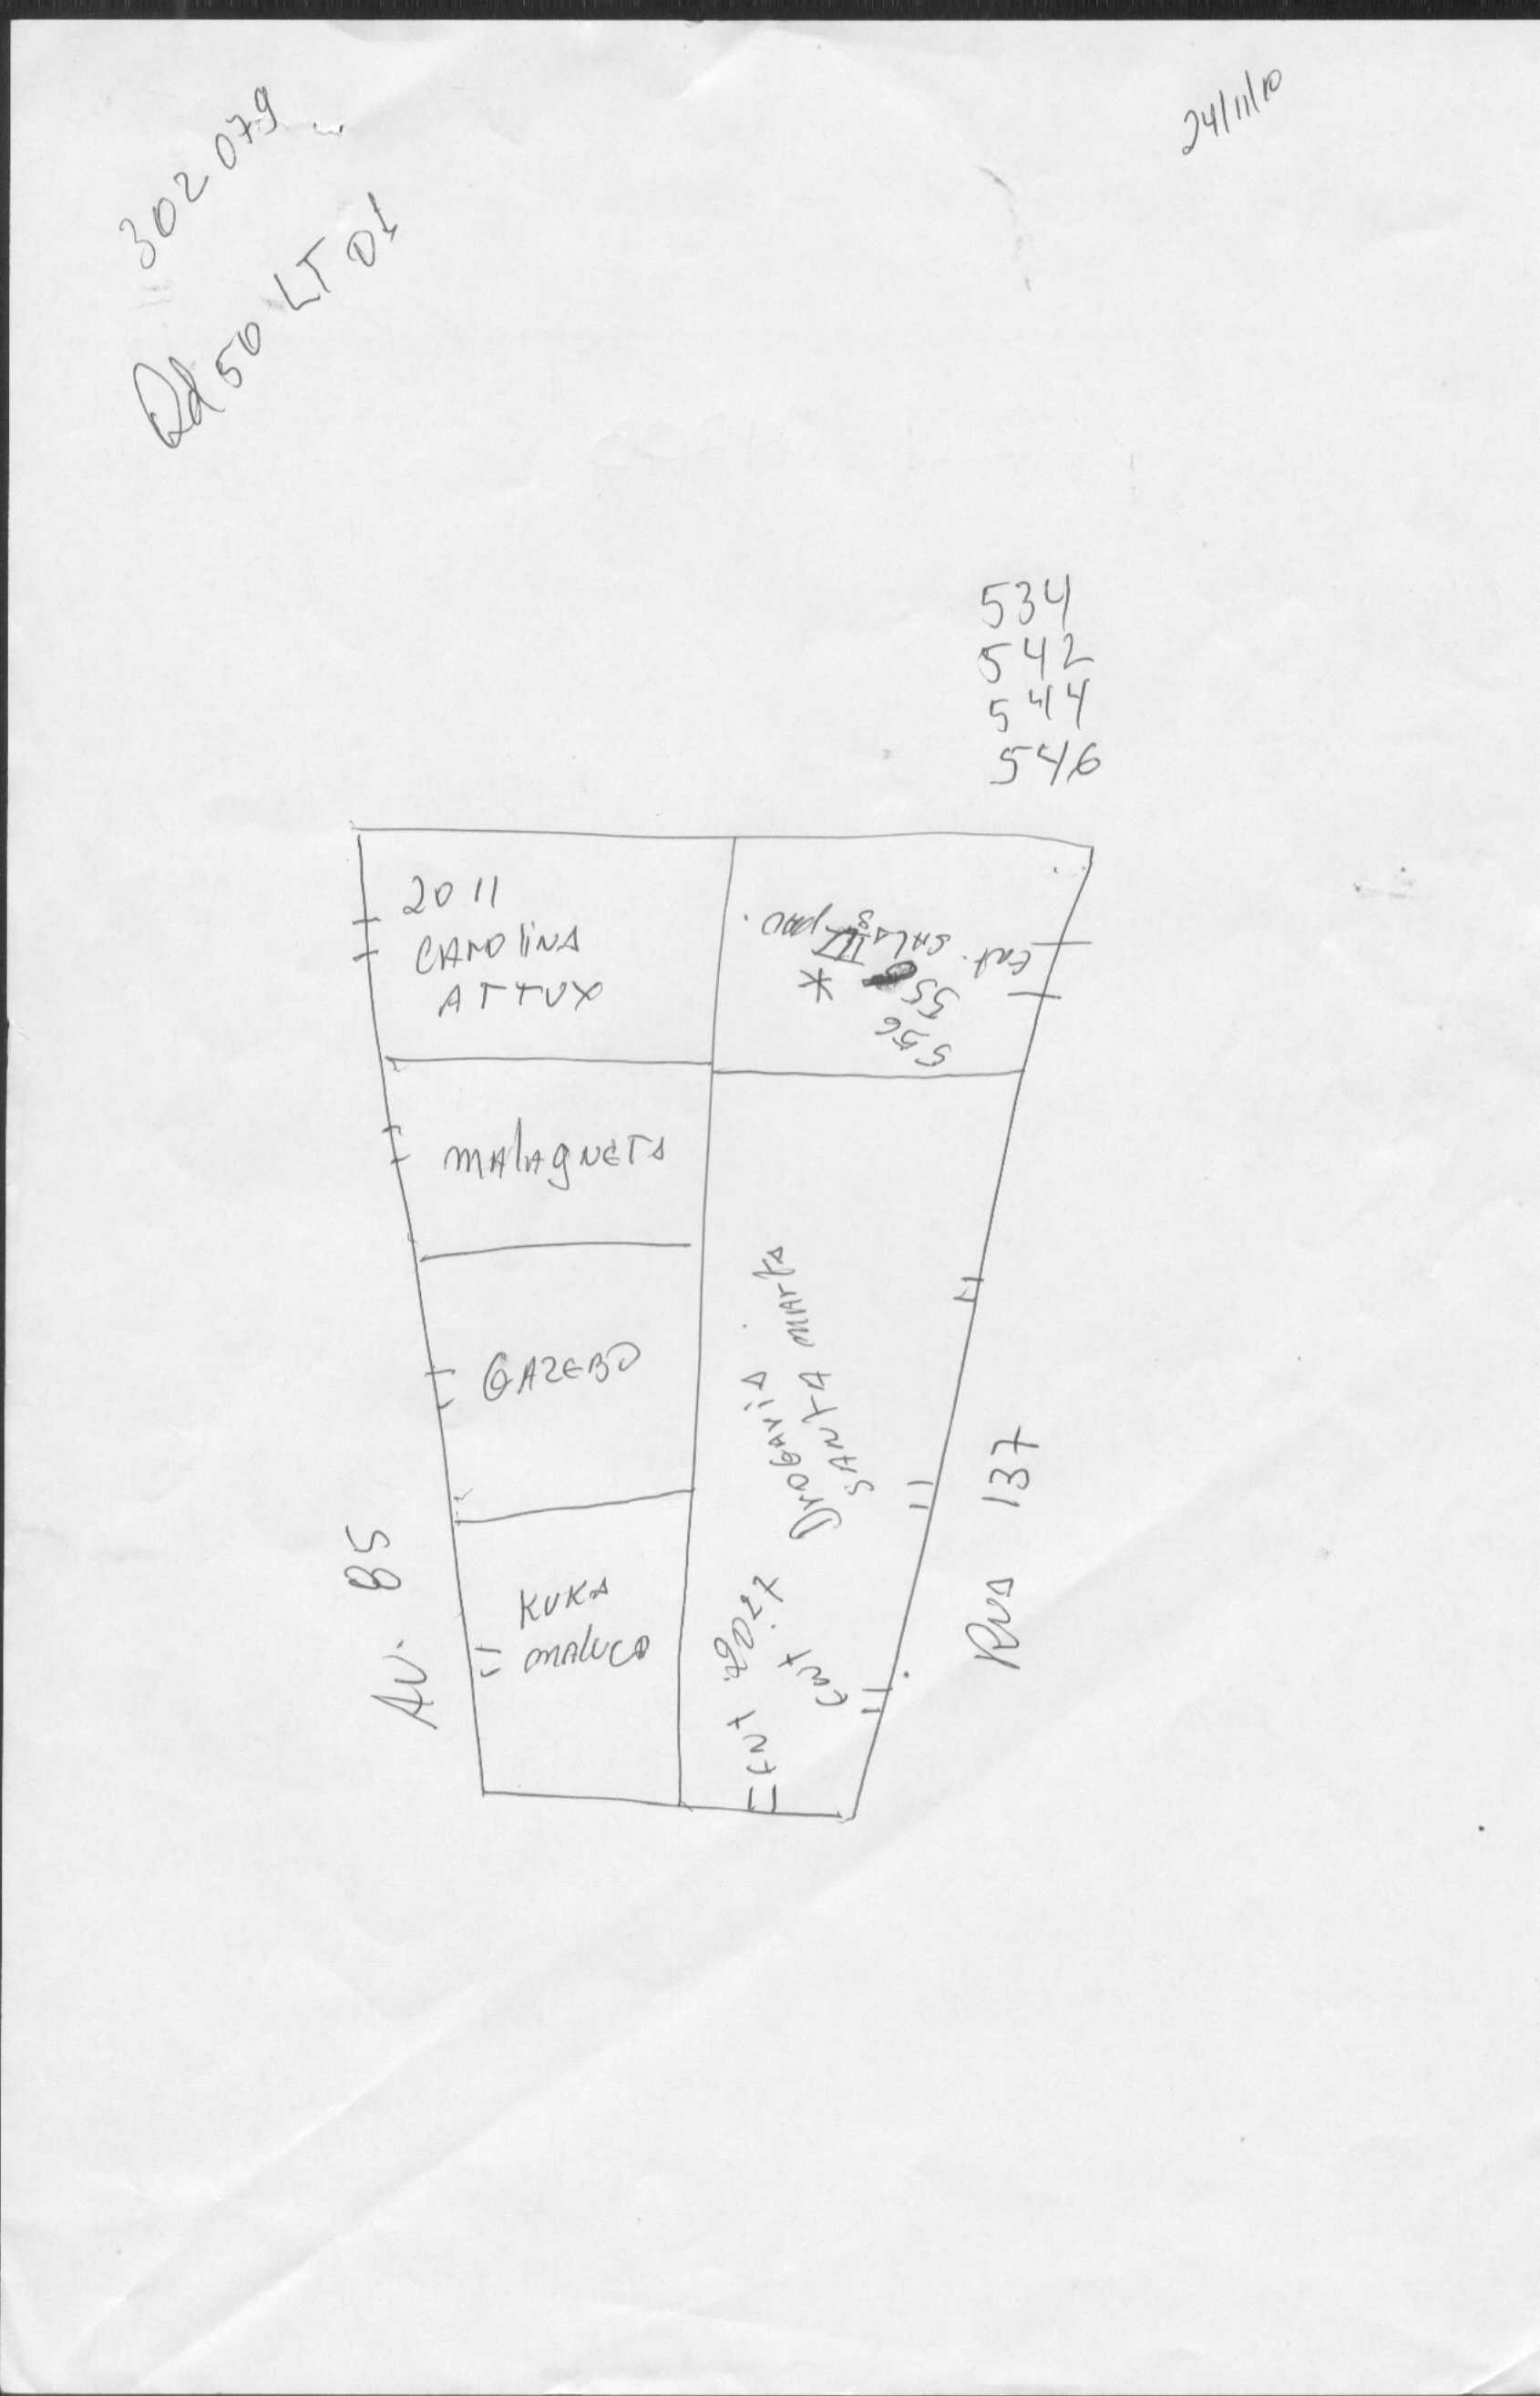 302 079
Qd 50 LT 01
24/11/10
534
542
544
546
2011
CAROLINA
ATTUX
556
55
SALAS
*
MALAGNETA
GAZEBO
KUKA
MALUCO
DROGARIA
SANTA MARTA
ENT
ENT
AV. 85
RUA 137